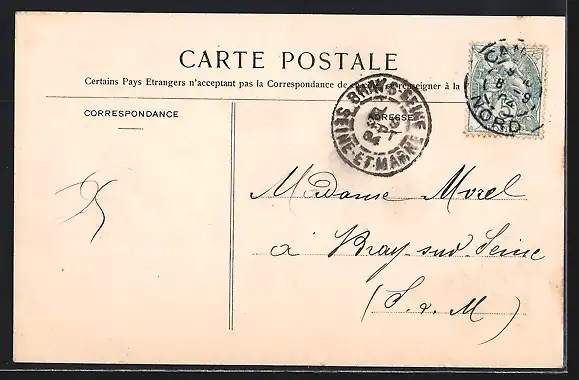 CARTE POSTALE
Certains Pays Etrangers n'acceptant pas la Correspondance de se renseigner à la
CORRESPONDANCE
ADRESSE
BRAY-S-SEINE
SEINE-ET-MARNE
NORD
Madame Morel
à Bray-sur-Seine
(S. & M)